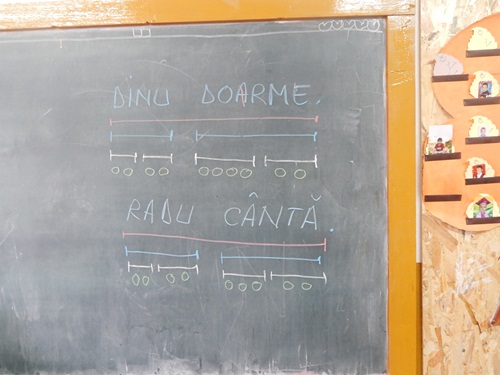 DINU DOARME.
RADU CÂNTĂ.